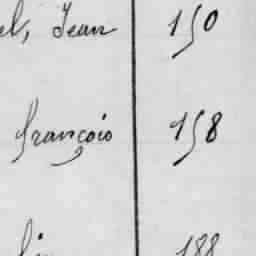 el, Jean 150
françois 158
188